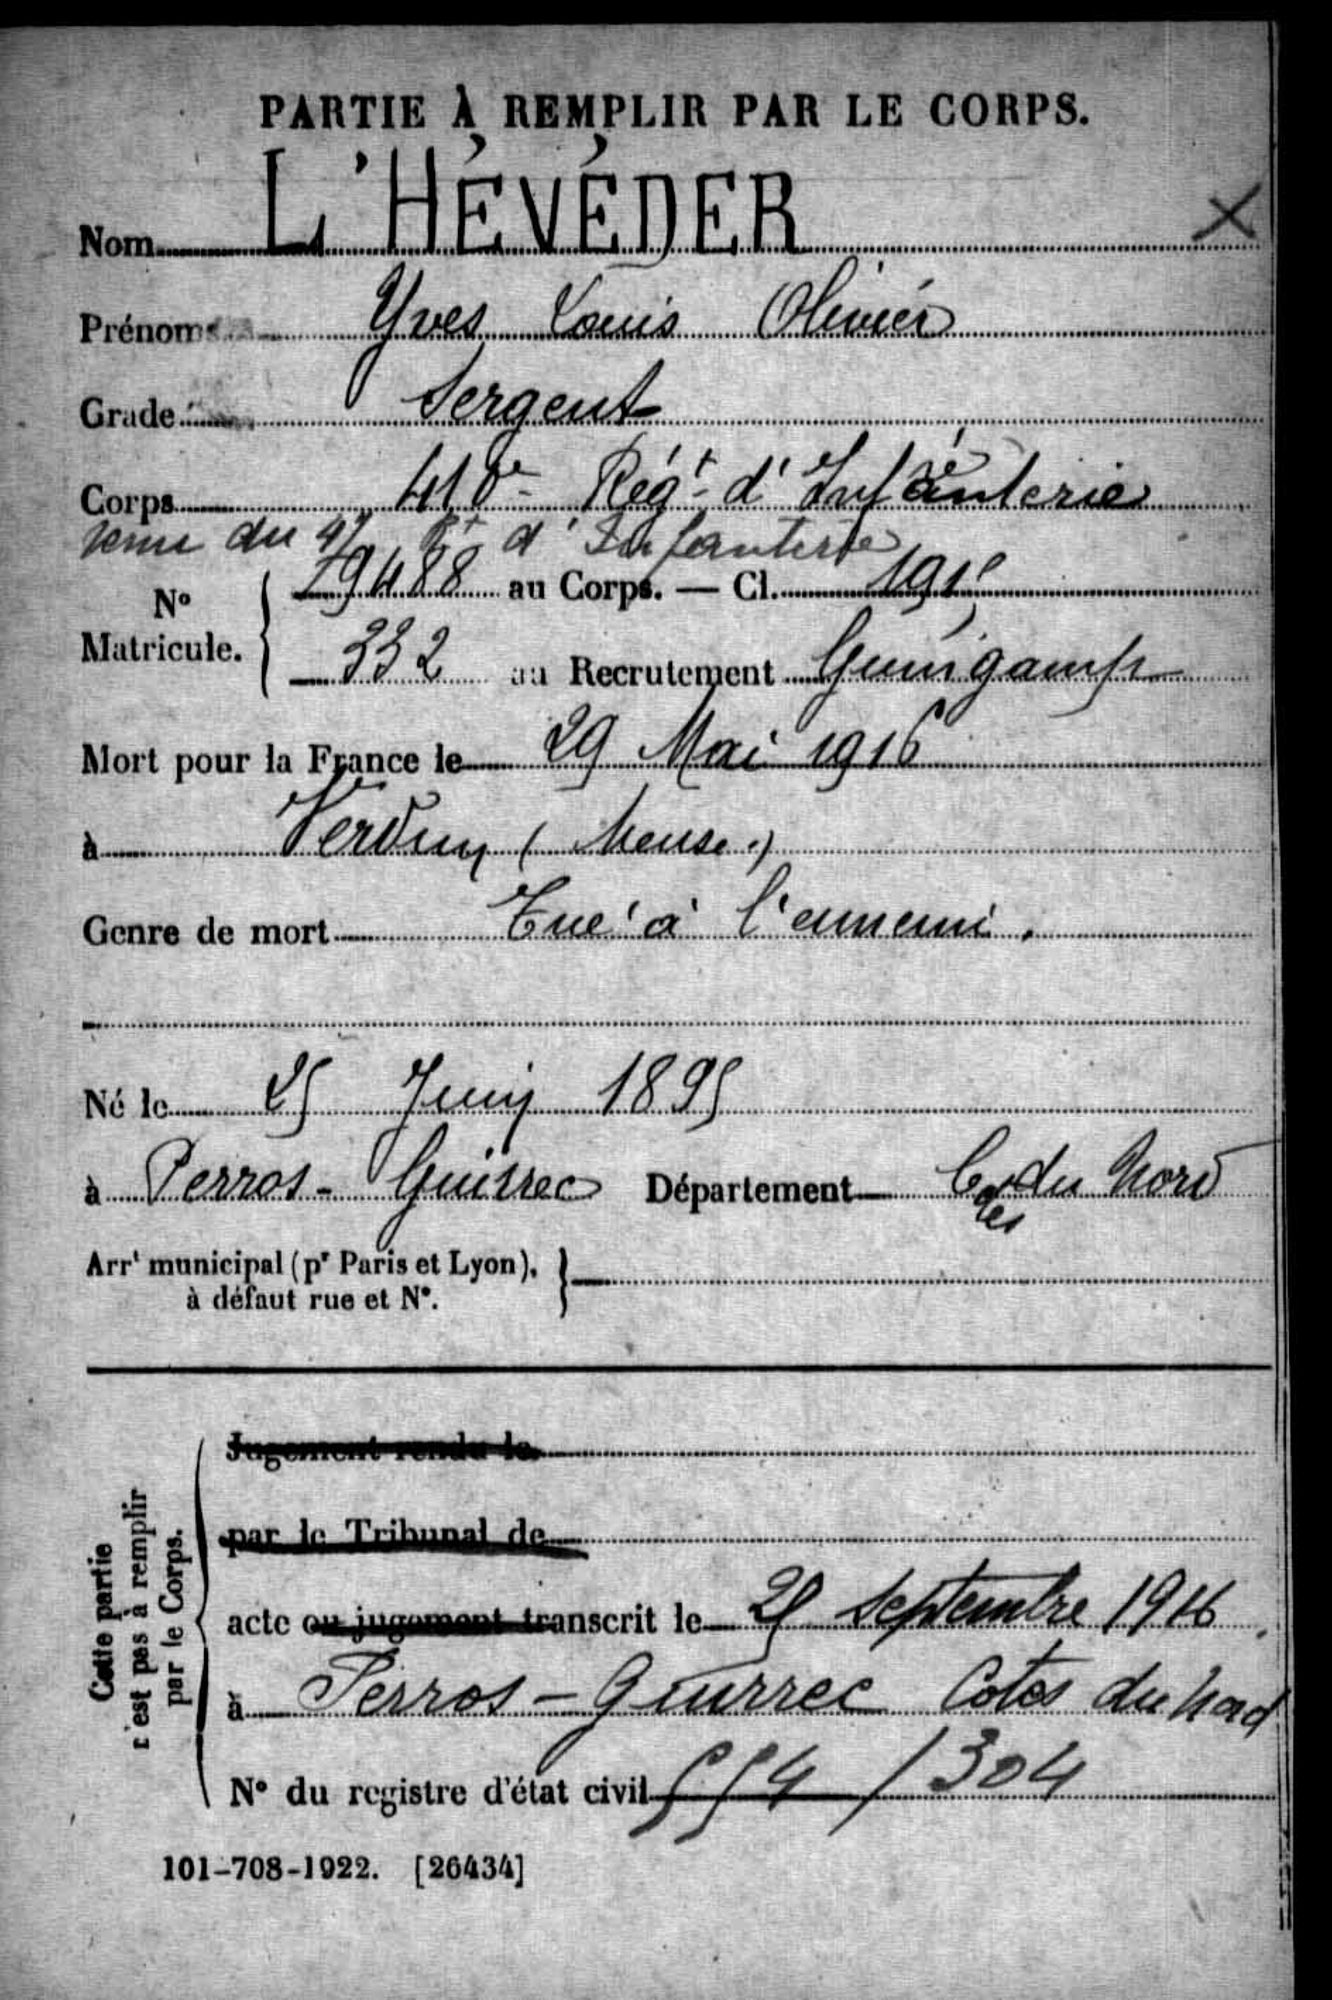 PARTIE À REMPLIR PAR LE CORPS.
Nom L'HÉVÉDER
Prénoms Yves Louis Olivier
Grade Sergent
Corps 410e Régt d'Infanterie
venu du 47 Rt d'Infanterie
N° Matricule. 79488 au Corps. — Cl. 1915
332 au Recrutement Guingamp
Mort pour la France le 29 Mai 1916
à Verdun (Meuse.)
Genre de mort Tué à l'ennemi.
Né le 25 Juin 1895
à Perros-Guirrec Département Côtes du Nord
Arrt municipal (pr Paris et Lyon),
à défaut rue et N°.
Cette partie
n'est pas à remplir
par le Corps.
Jugement rendu le
par le Tribunal de
acte ou jugement transcrit le 25 Septembre 1916
à Perros-Guirrec Cotes du Nord
N° du registre d'état civil 554/304
101-708-1922. [26434]